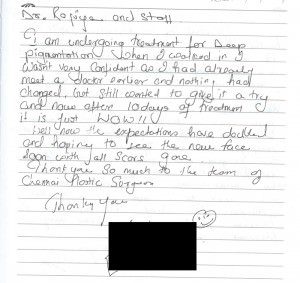 Dr. Rajiya and staff
I am undergoing treatment for Deep
pigmentation. When I walked in I
wasn't very confident as I had already
meet a doctor earlier and nothing had
changed, but still wanted to give it a try
and now after 10 days of treatment
it is just WOW!!
Well now the expectations have doubled
and hoping to see the new face
Soon with all Scars gone.
Thank you So much to the team of
Chennai Plastic Surgery
Thank you